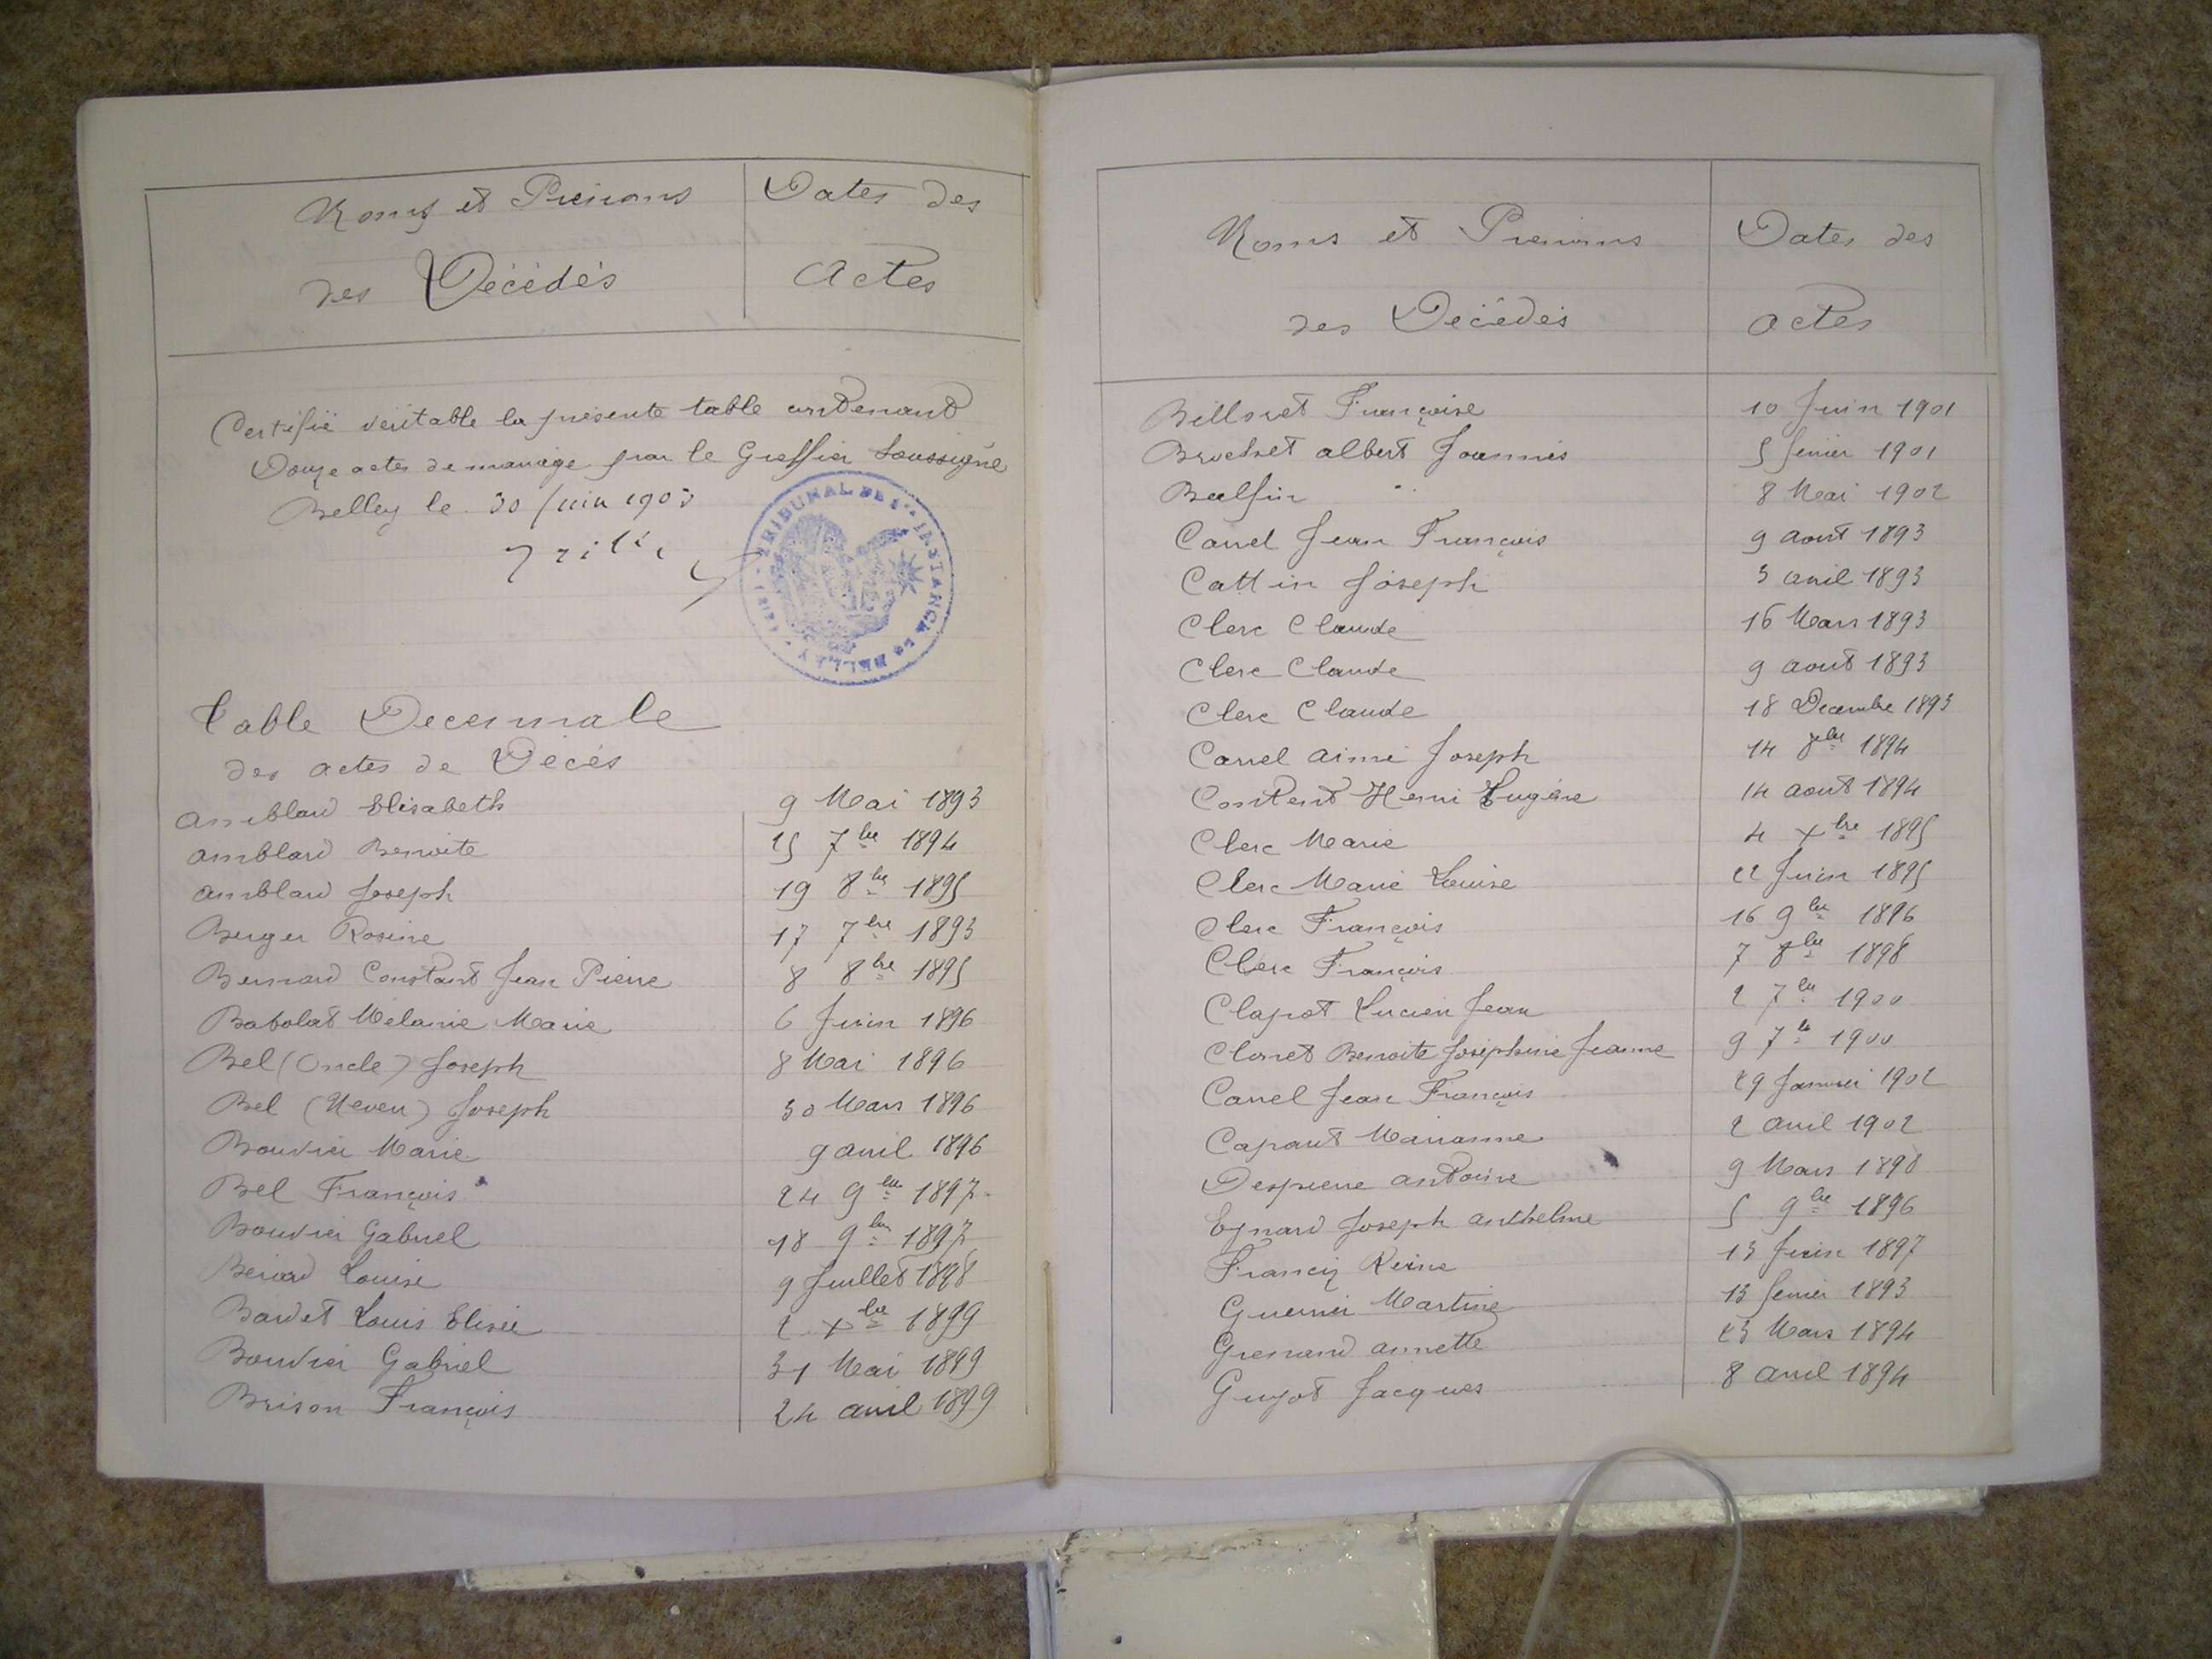 Noms et Prénoms
des Décédés
Dates des
Actes
Certifié véritable la présente table contenant
Douze actes de mariage par le Greffier Soussigné
Belley le 30 Juin 1903
TRIBUNAL DE 1re INSTANCE DE BELLEY
Table Decennale
des actes de Décés
Amblard Elisabeth 9 Mai 1893
Amblard Benoite 15 7bre 1894
Amblard Joseph 19 8bre 1895
Berger Rosine 17 7bre 1893
Bernard Constant Jean Pierre 8 8bre 1895
Babolat Mélanie Marie 6 Juin 1896
Bel (Oncle) Joseph 8 Mai 1896
Bel (Neveu) Joseph 30 Mars 1896
Bouvier Marie 9 avril 1896
Bel François 24 9bre 1897
Bouvier Gabriel 18 9bre 1897
Berard Louise 9 Juillet 1898
Bardet Louis Elisée 2 Xbre 1899
Bouvier Gabriel 31 Mai 1899
Brison François 24 avril 1899
Noms et Prenoms
des Décédés
Dates des
actes
Billoret Françoise 10 Juin 1901
Brochet albert Joannis 5 février 1901
8 Mai 1902
Carrel Jean François 9 aout 1893
Cattin Joseph 3 avril 1893
Clerc Claude 16 Mars 1893
Clerc Claude 9 aout 1893
Clerc Claude 18 Decembre 1893
Carrel aimé Joseph 14 8bre 1894
Content Henri Eugène 14 aout 1894
Clerc Marie 4 Xbre 1895
Clerc Marie Louise 22 Juin 1895
Clerc François 16 9bre 1896
Clerc François 7 8bre 1898
Clapot Lucien Jean 2 7bre 1900
Cloret Benoite Joséphine Jeanne 9 7bre 1900
Carrel Jean François 29 Janvier 1902
Capaut Marianne 2 avril 1902
Despierre antoine 9 Mars 1898
Eynard Joseph anthelme 5 9bre 1896
Franciz Reine 13 Juin 1897
Guerrier Martine 13 fevrier 1893
Grenand annette 23 Mars 1894
Guyot Jacques 8 avril 1894